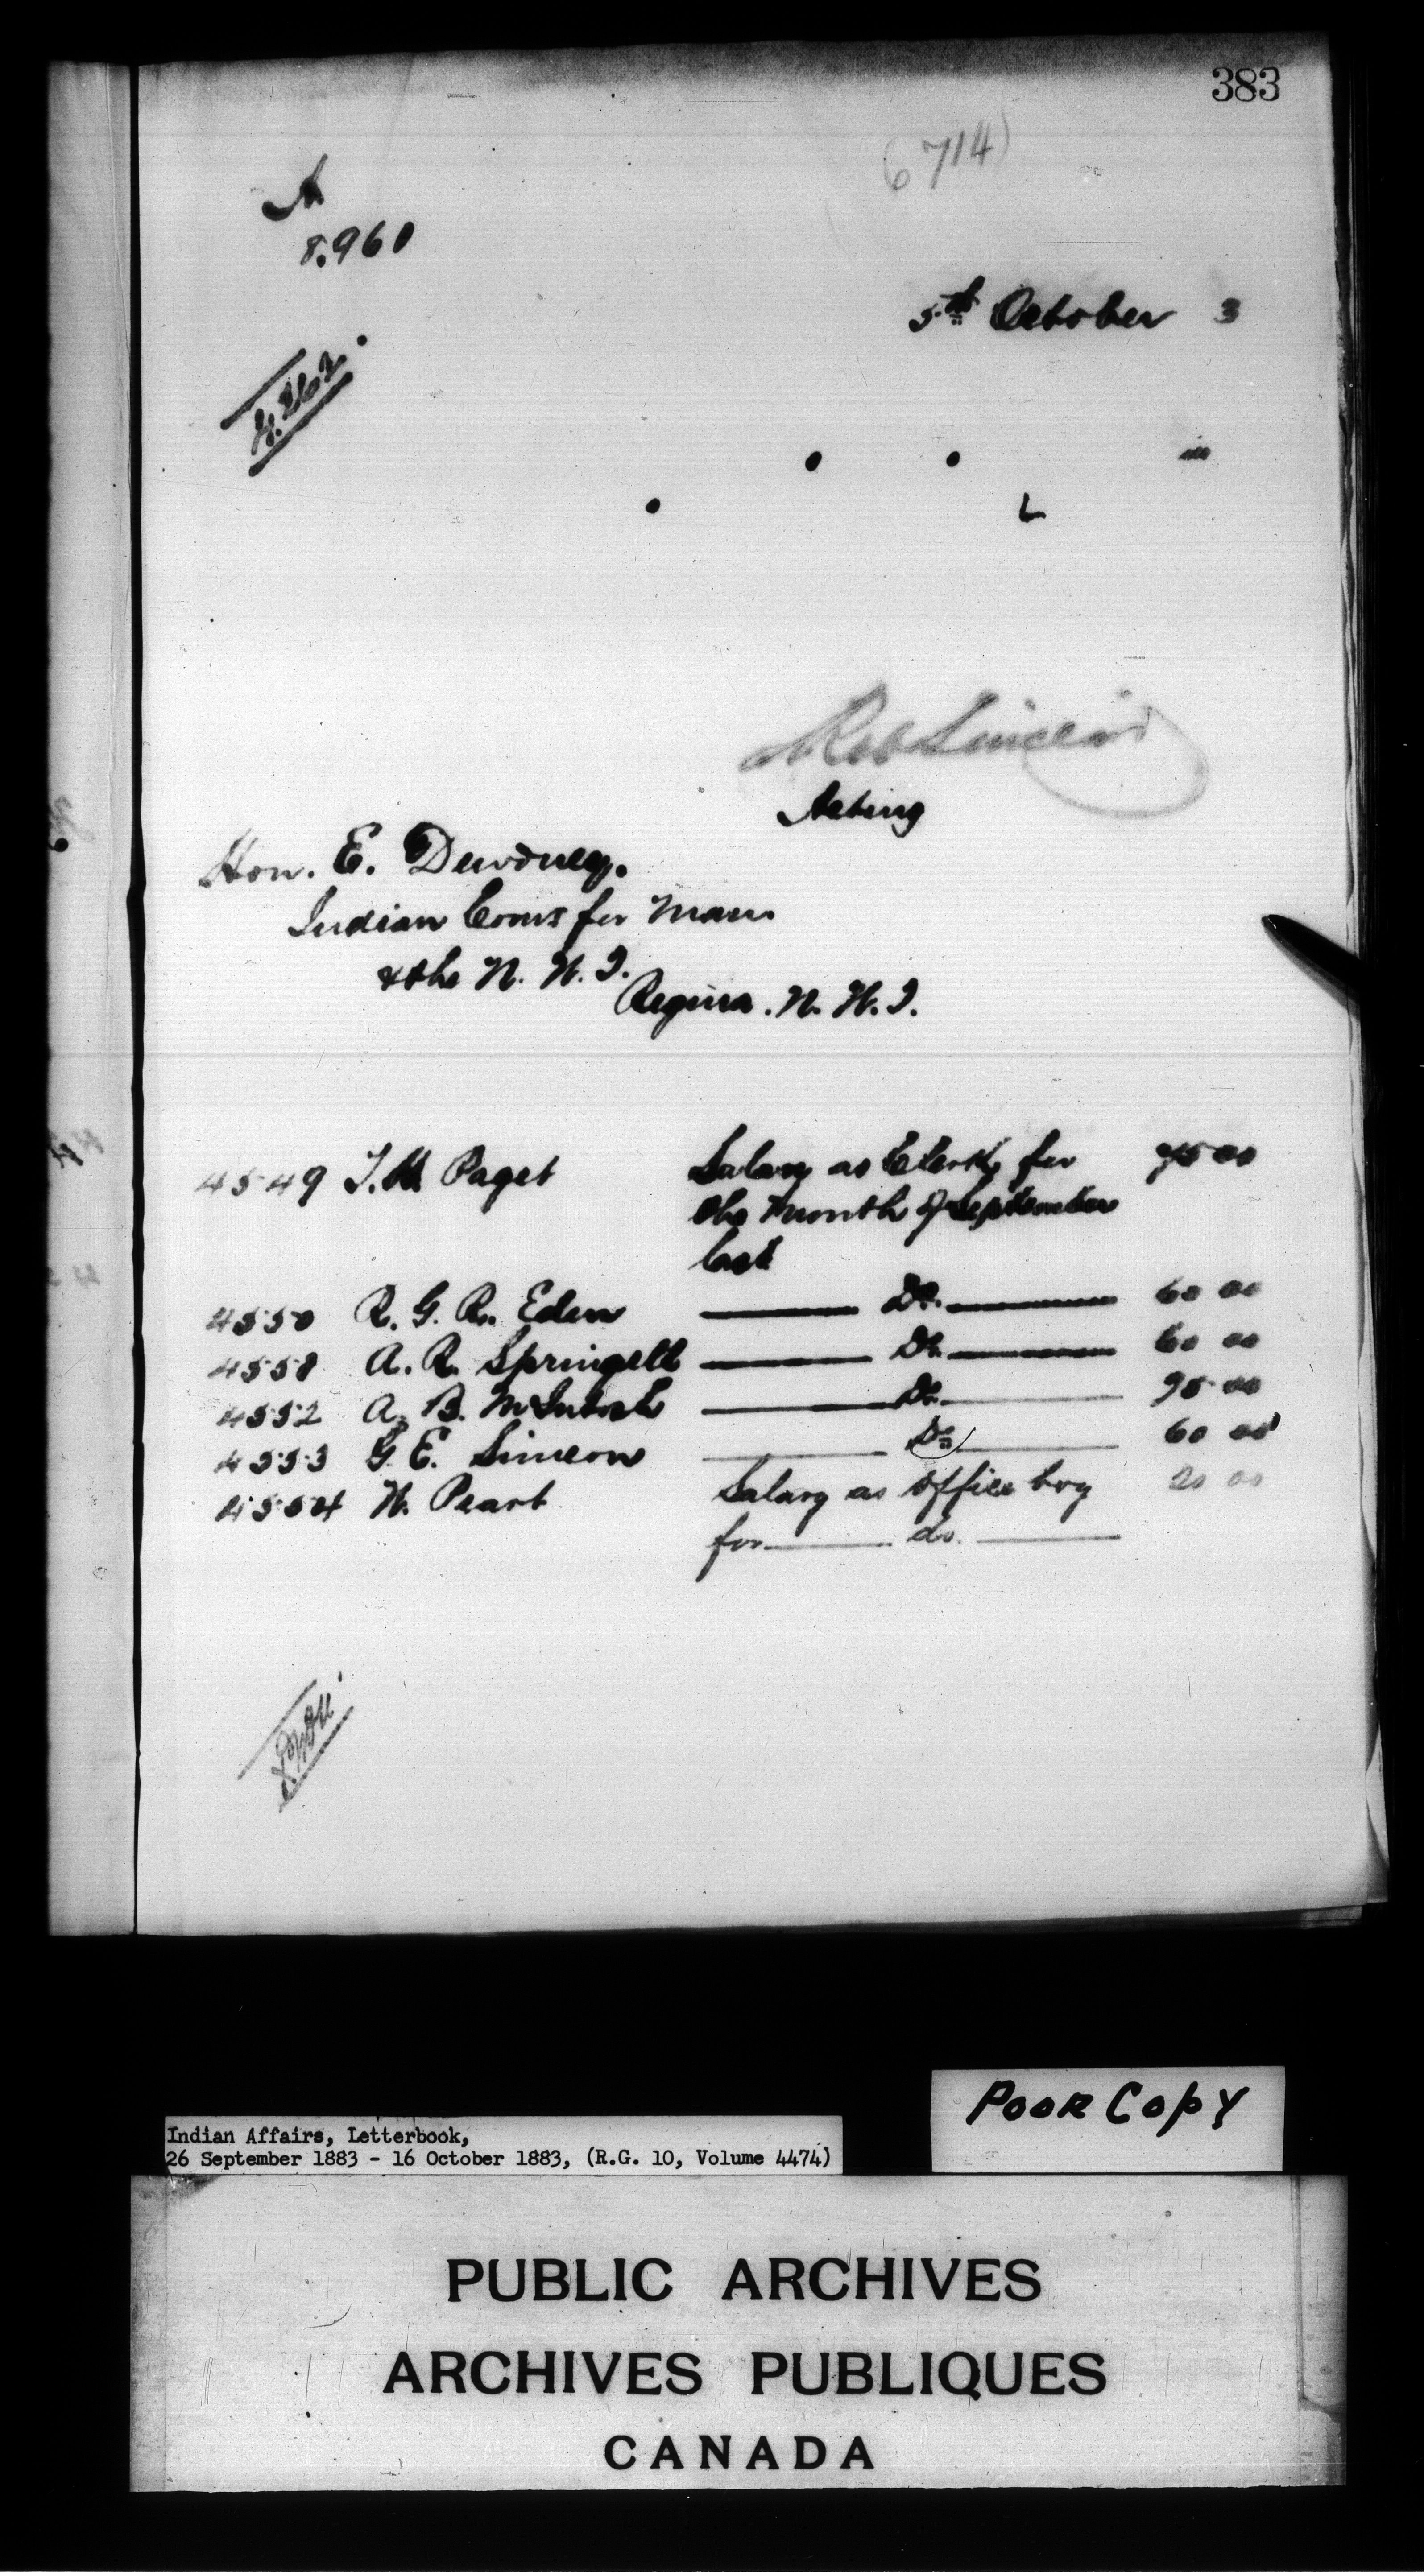 383
(6714)
A
8.960
5th October 3
in
L
Rob Sinclair
Acting
Hon. E. Dewdney.
Indian Coms for Man.
& the N. W. T.
Regina. N. W. T.
4549 T. Paget Salary as Clerk, for 75 00
the month of September
last
4550 R. G. R. Eden Do. 60 00
4551 A. R. Springett Do. 60 00
4552 A. B. McIntosh Do. 75 00
4553 G. E. Simeon Do 60 00
4554 W. Peart Salary as office boy 20 00
for do.
POOR COPY
Indian Affairs, Letterbook,
26 September 1883 - 16 October 1883, (R.G. 10, Volume 4474)
PUBLIC ARCHIVES
ARCHIVES PUBLIQUES
CANADA